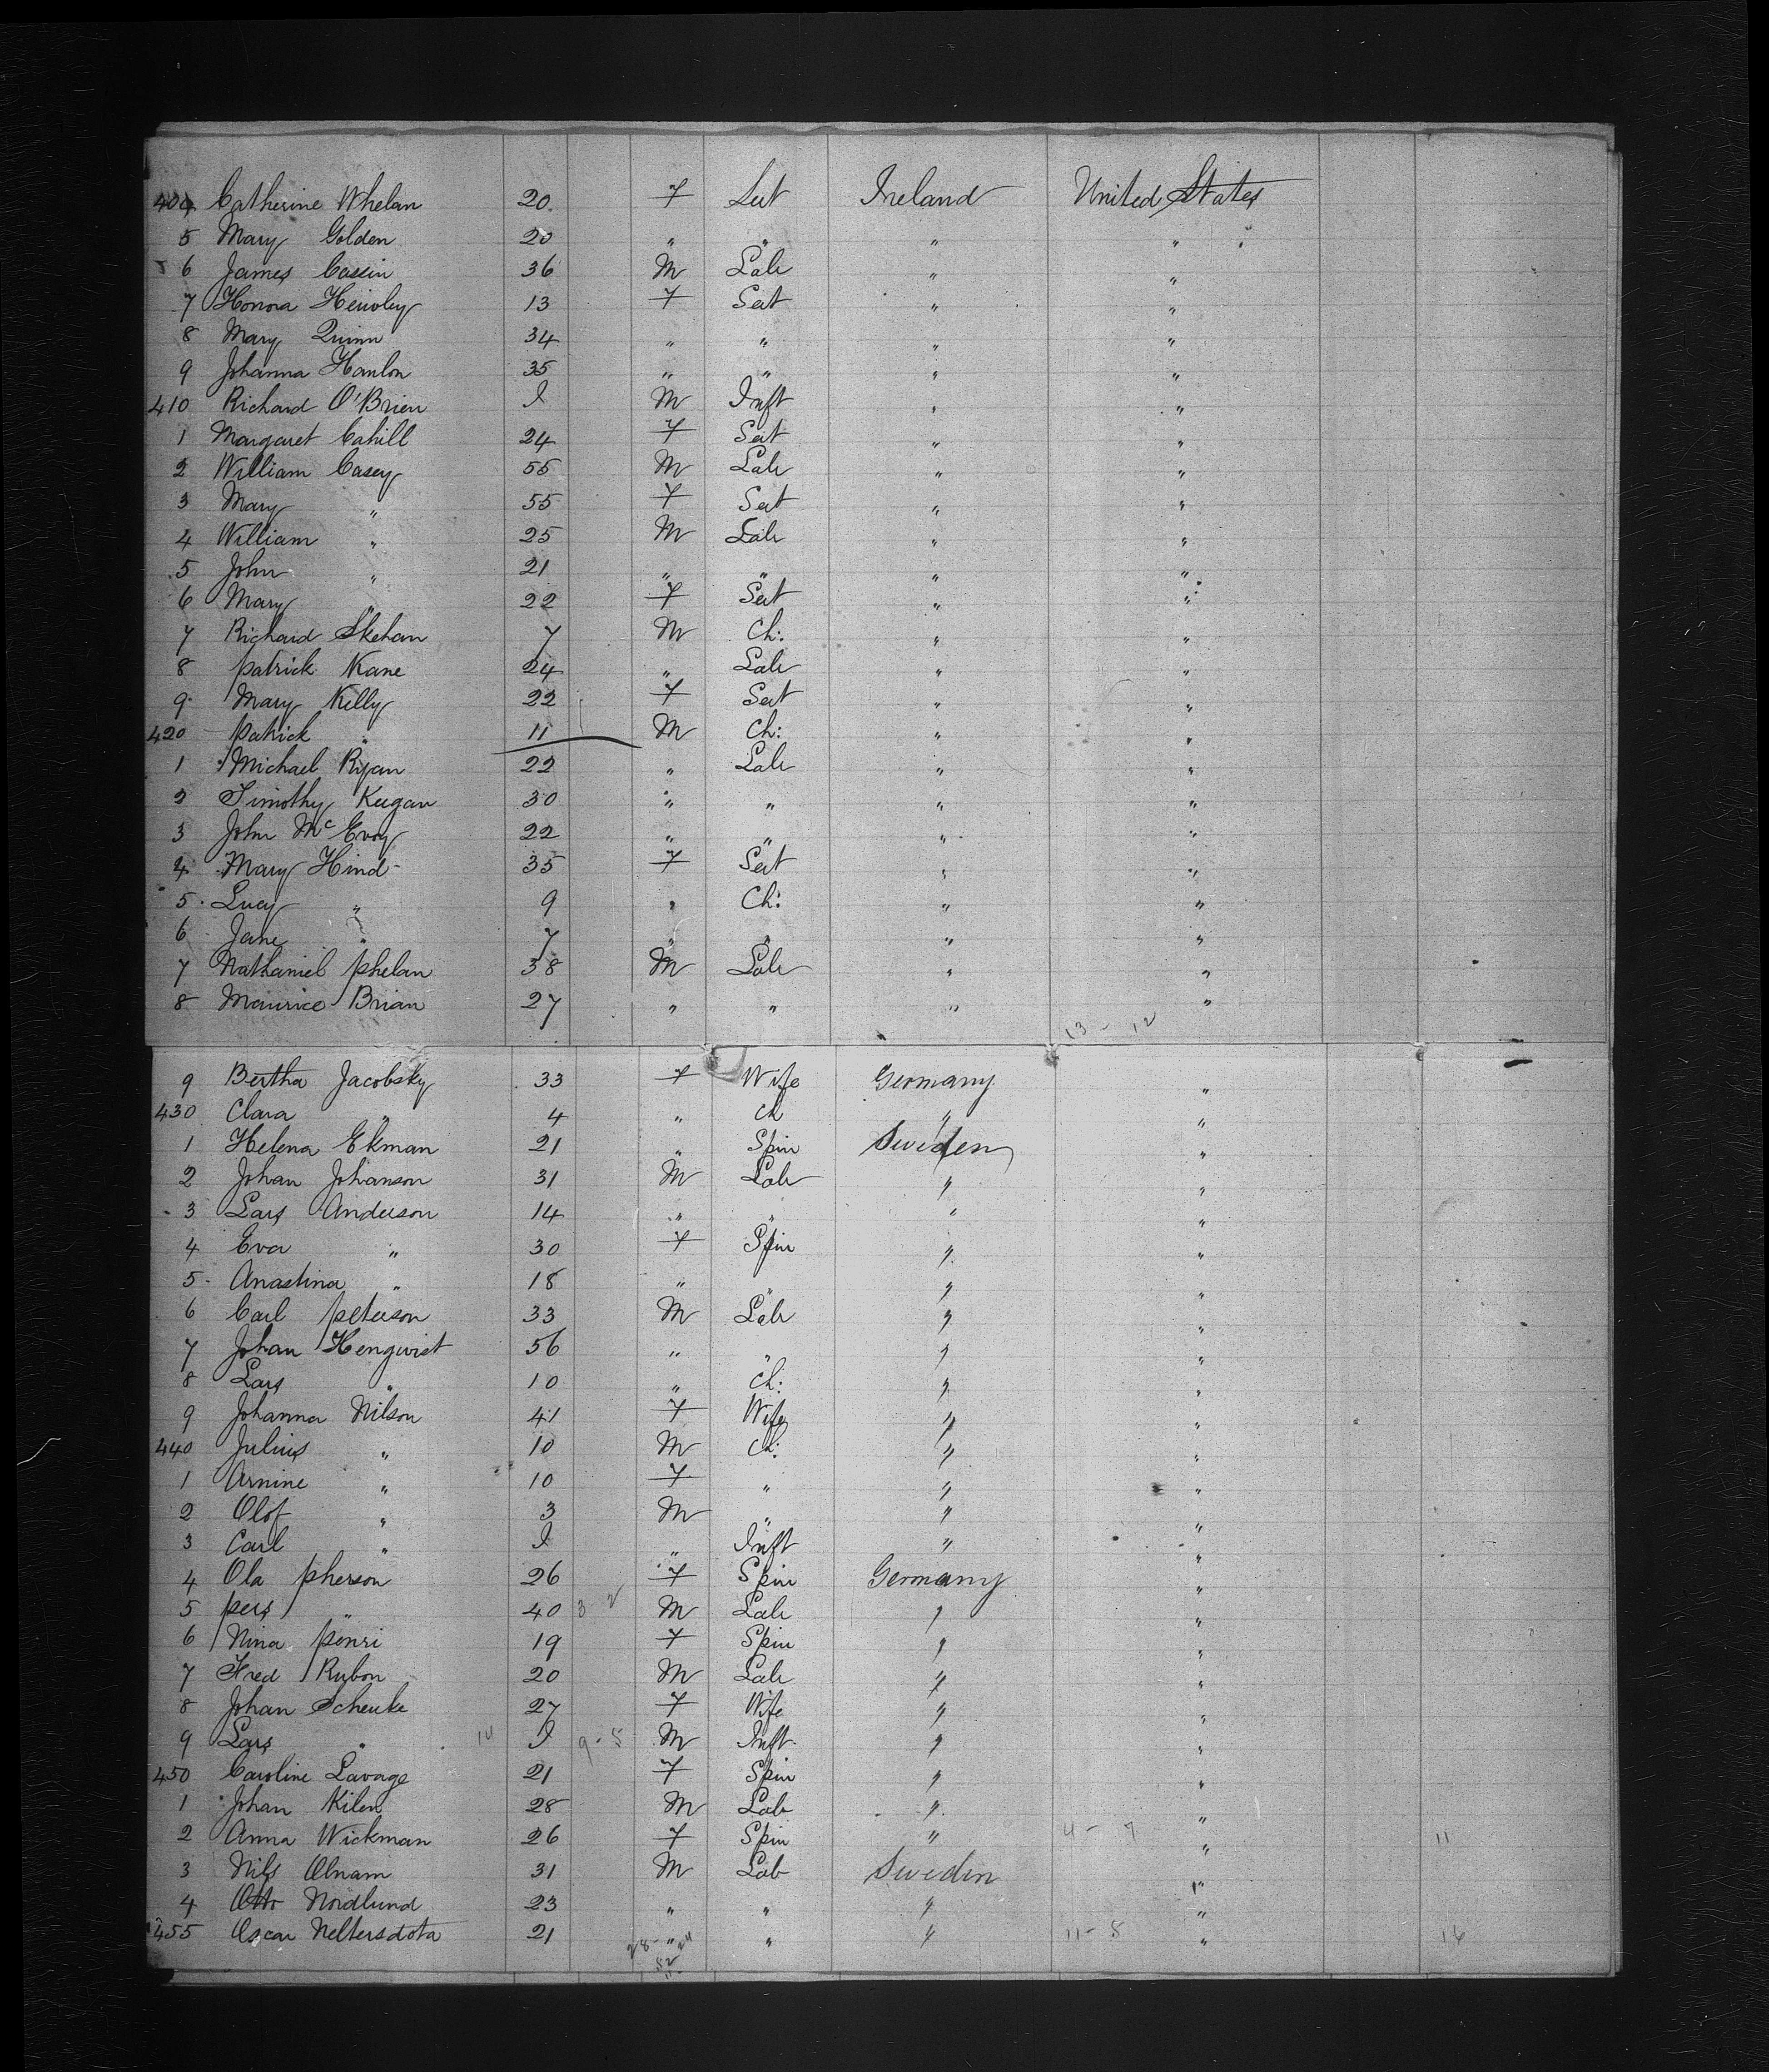 404 Catherine Whelan 20 F Sert Ireland United States
5 Mary Golden 20 " " " "
6 James Cassin 36 M Lab " "
7 Honora 13 F Sert " "
8 Mary Quinn 34 " " " "
9 Johanna Hanlon 35 " " " "
410 Richard O'Brien I M Inft " "
1 Margaret Cahill 24 F Sert " "
2 William Casey 55 M Lab " "
3 Mary " 55 F Sert " "
4 William " 25 M Lab " "
5 John " 21 " " " "
6 Mary " 22 F Sert " "
7 Richard Skehan 7 M Ch: " "
8 Patrick Kane 24 " Lab " "
9 Mary Kelly 22 F Sert " "
420 Patrick " 11 M Ch: " "
1 Michael Ryan 22 " Lab " "
2 Timothy Keegan 30 " " " "
3 John McEvoy 22 " " " "
4 Mary Hind 35 F Sert " "
5 Lucy " 9 " Ch: " "
6 Jane " 7 " " " "
7 Nathaniel Phelan 38 M Lab " "
8 Maurice Brian 27 " " " "
13 - 12
9 Bertha Jacobsky 33 F Wife Germany "
430 Clara " 4 " Ch " "
1 Helena Ekman 21 " Spin Sweden "
2 Johan Johanson 31 M Lab " "
3 Lars Anderson 14 " " " "
4 Eva " 30 F Spin " "
5 Anastina " 18 " " " "
6 Carl Peterson 33 M Lab " "
7 Johan Henqvist 56 " " " "
8 Lars " 10 " Ch: " "
9 Johanna Nilson 41 F Wife " "
440 Julius " 10 M Ch: " "
1 Arnine " 10 F " " "
2 Olof " 3 M " " "
3 Carl " I " Inft " "
4 Ola Pherson 26 F Spin Germany "
5 Pers " 40 3 - 2 M Lab " "
6 Nina Penri 19 F Spin " "
7 Fred Rubon 20 M Lab " "
8 Johan Scheuke 27 F Wife " "
9 Lars " 10 I 9 - 5 M Inft " "
450 Caroline Lavage 21 F Spin " "
1 Johan Kilen 28 M Lab " "
2 Anna Wickman 26 F Spin " 4 - 7 " 11
3 Nils Olnam 31 M Lab Sweden "
4 Otto Nordlund 23 " " " "
455 Oscar Neltersdota 21 " " " 11 - 8 " 16
28 - 24
52